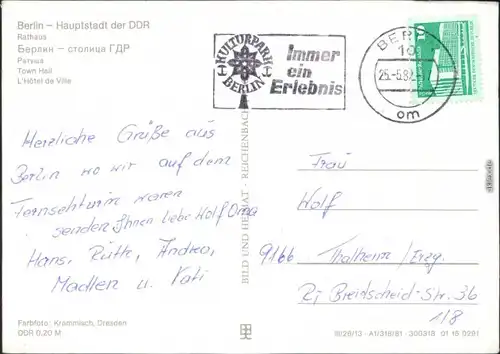 Berlin – Hauptstadt der DDR
Rathaus
Берлин – столица ГДР
Ратуша
Town Hall
L'Hôtel de Ville
KULTURPARK
BERLIN
Immer
ein
Erlebnis
BER
25.-5.82
om
10
Herzliche Grüße aus
Berlin wo wir auf dem
Fernsehturm waren
senden Ihnen liebe Wolf Oma
Hans, Ruth, Andrea,
Madlen u. Kati
BILD UND HEIMAT · REICHENBACH
Frau
Wolf
9166 Thalheim/Erzg.
Breidscheid-Str. 36
118
Farbfoto: Krammisch, Dresden
DDR 0,20 M
A1/318/81 300318 01 16 0201